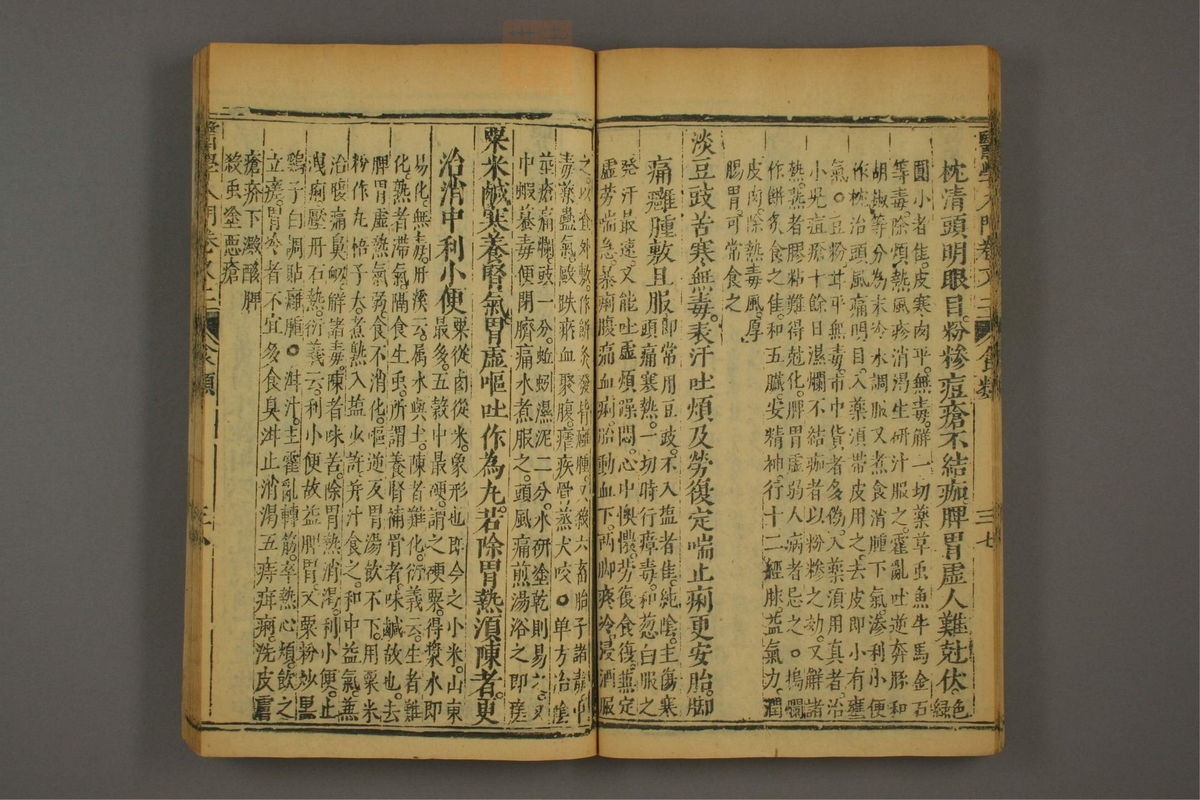 醫學入門卷之二 食類 三七
枕清頭明眼目粉摻痘瘡不結痂脾胃虛人難尅伏色綠
圓小者佳皮寒肉平無毒解一切藥草虫魚牛馬金石
等毒除煩熱風疹消渴生研汁服之霍亂吐逆奔豚和
胡椒等分為末冷水調服又煮食消腫下氣滲利小便
作枕治頭風痛明目入藥須帶皮用之去皮即小有壅
氣豆粉甘平無毒市中貨者多偽入藥須用真者治
小兒痘瘡十餘日濕爛不結痂者以粉摻之効又解諸
熱熱者膠粘難得尅化脾胃虛弱人病者忌之〇搗爛
作餅炙食之佳和五臟安精神行十二經脉益氣力潤
皮肉除熱毒風厚
腸胃可常食之
淡豆豉苦寒無毒表汗吐煩及勞復定喘止痢更安胎脚
痛癰腫敷且服即常用豆豉不入塩者佳純陰主傷寒
頭痛寒熱一切時行瘴毒和葱白服之
発汗最速又能吐虛煩躁悶心中懊憹勞復食復兼定
虛勞喘急暴痢腹痛血痢胎動血下兩脚疼冷浸酒服
之以查外敷作餅炙發背癰腫又殺六畜胎子諸毒中
毒藥蠱氣毆跌瘀血聚腹瘧疾骨蒸犬咬〇单方治陰
莖瘡痛爛豉一分蚯蚓濕泥二分水研塗乾則易之又
中蝦蟇毒便閉臍痛水煮服之頭風痛煎湯浴之即痊
粟米鹹寒養腎氣胃虛嘔吐作為丸若除胃熱須陳者更
治消中利小便粟從鹵從米象形也即今之小米山東
最多五穀中最硬謂之硬粟得漿水即
易化無毒丹溪云属水與土陳者難化衍義云生者難
化熟者滯氣隔食生虫所謂養腎補骨者味鹹故也去
脾胃虛熱氣弱食不消化嘔逆反胃湯飲不下用粟米
粉作丸梧子大煮熟入塩少許并汁食之和中益氣兼
治腹痛鼻衂解諸毒陳者味苦除胃熱消渴利小便止
洩痢壓丹石熱衍義云利小便故益脾胃又粟粉炒黑
鷄子白調貼癰腫〇泔汁主霍亂轉筋卒熱心煩飲之
立瘥胃冷者不宜多食臭泔止消渴五痔疳痢洗皮膚
瘡疥下澱酸脾
殺虫塗惡瘡
醫學入門卷之二 食類 三八